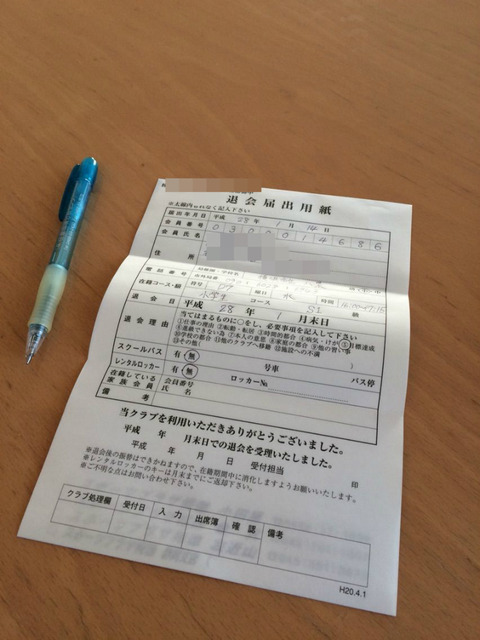 退会届出用紙
※太線内をもれなく記入下さい
届出年月日 平成 28年 1月 14日
会員番号 0300014686
会員氏名
住所
電話番号
在籍コース・級 曜日 コース 時間 級
退会日 平成 28年 1月末日
退会理由 当てはまるものに○をし、必要事項を記入して下さい
①仕事の理由 ②転勤・転居 ③時間的都合 ④病気・けが ⑤目標達成
⑥進級できない為 ⑦本人の意思 ⑧家庭の都合 ⑨他の習い事
⑩学校の都合 ⑪他のクラブへ移動 ⑫施設への不満
⑬その他(
スクールバス 有 無 号車 バス停
レンタルロッカー 有 無 ロッカーNo. )
在籍している家族会員 会員番号
氏名
備考
当クラブを利用いただきありがとうございました。
平成 年 月末日での退会を受理いたしました。
平成 年 月 日 受付担当 印
※退会後の振替はできかねますので、在籍期間中に消化しますようお願いいたします。
※レンタルロッカーのキーは月末までにご返却下さい。
※ご不明な点はお問い合わせ下さい。
クラブ処理欄 受付日 入力 出席簿 確認 備考
H20.4.1